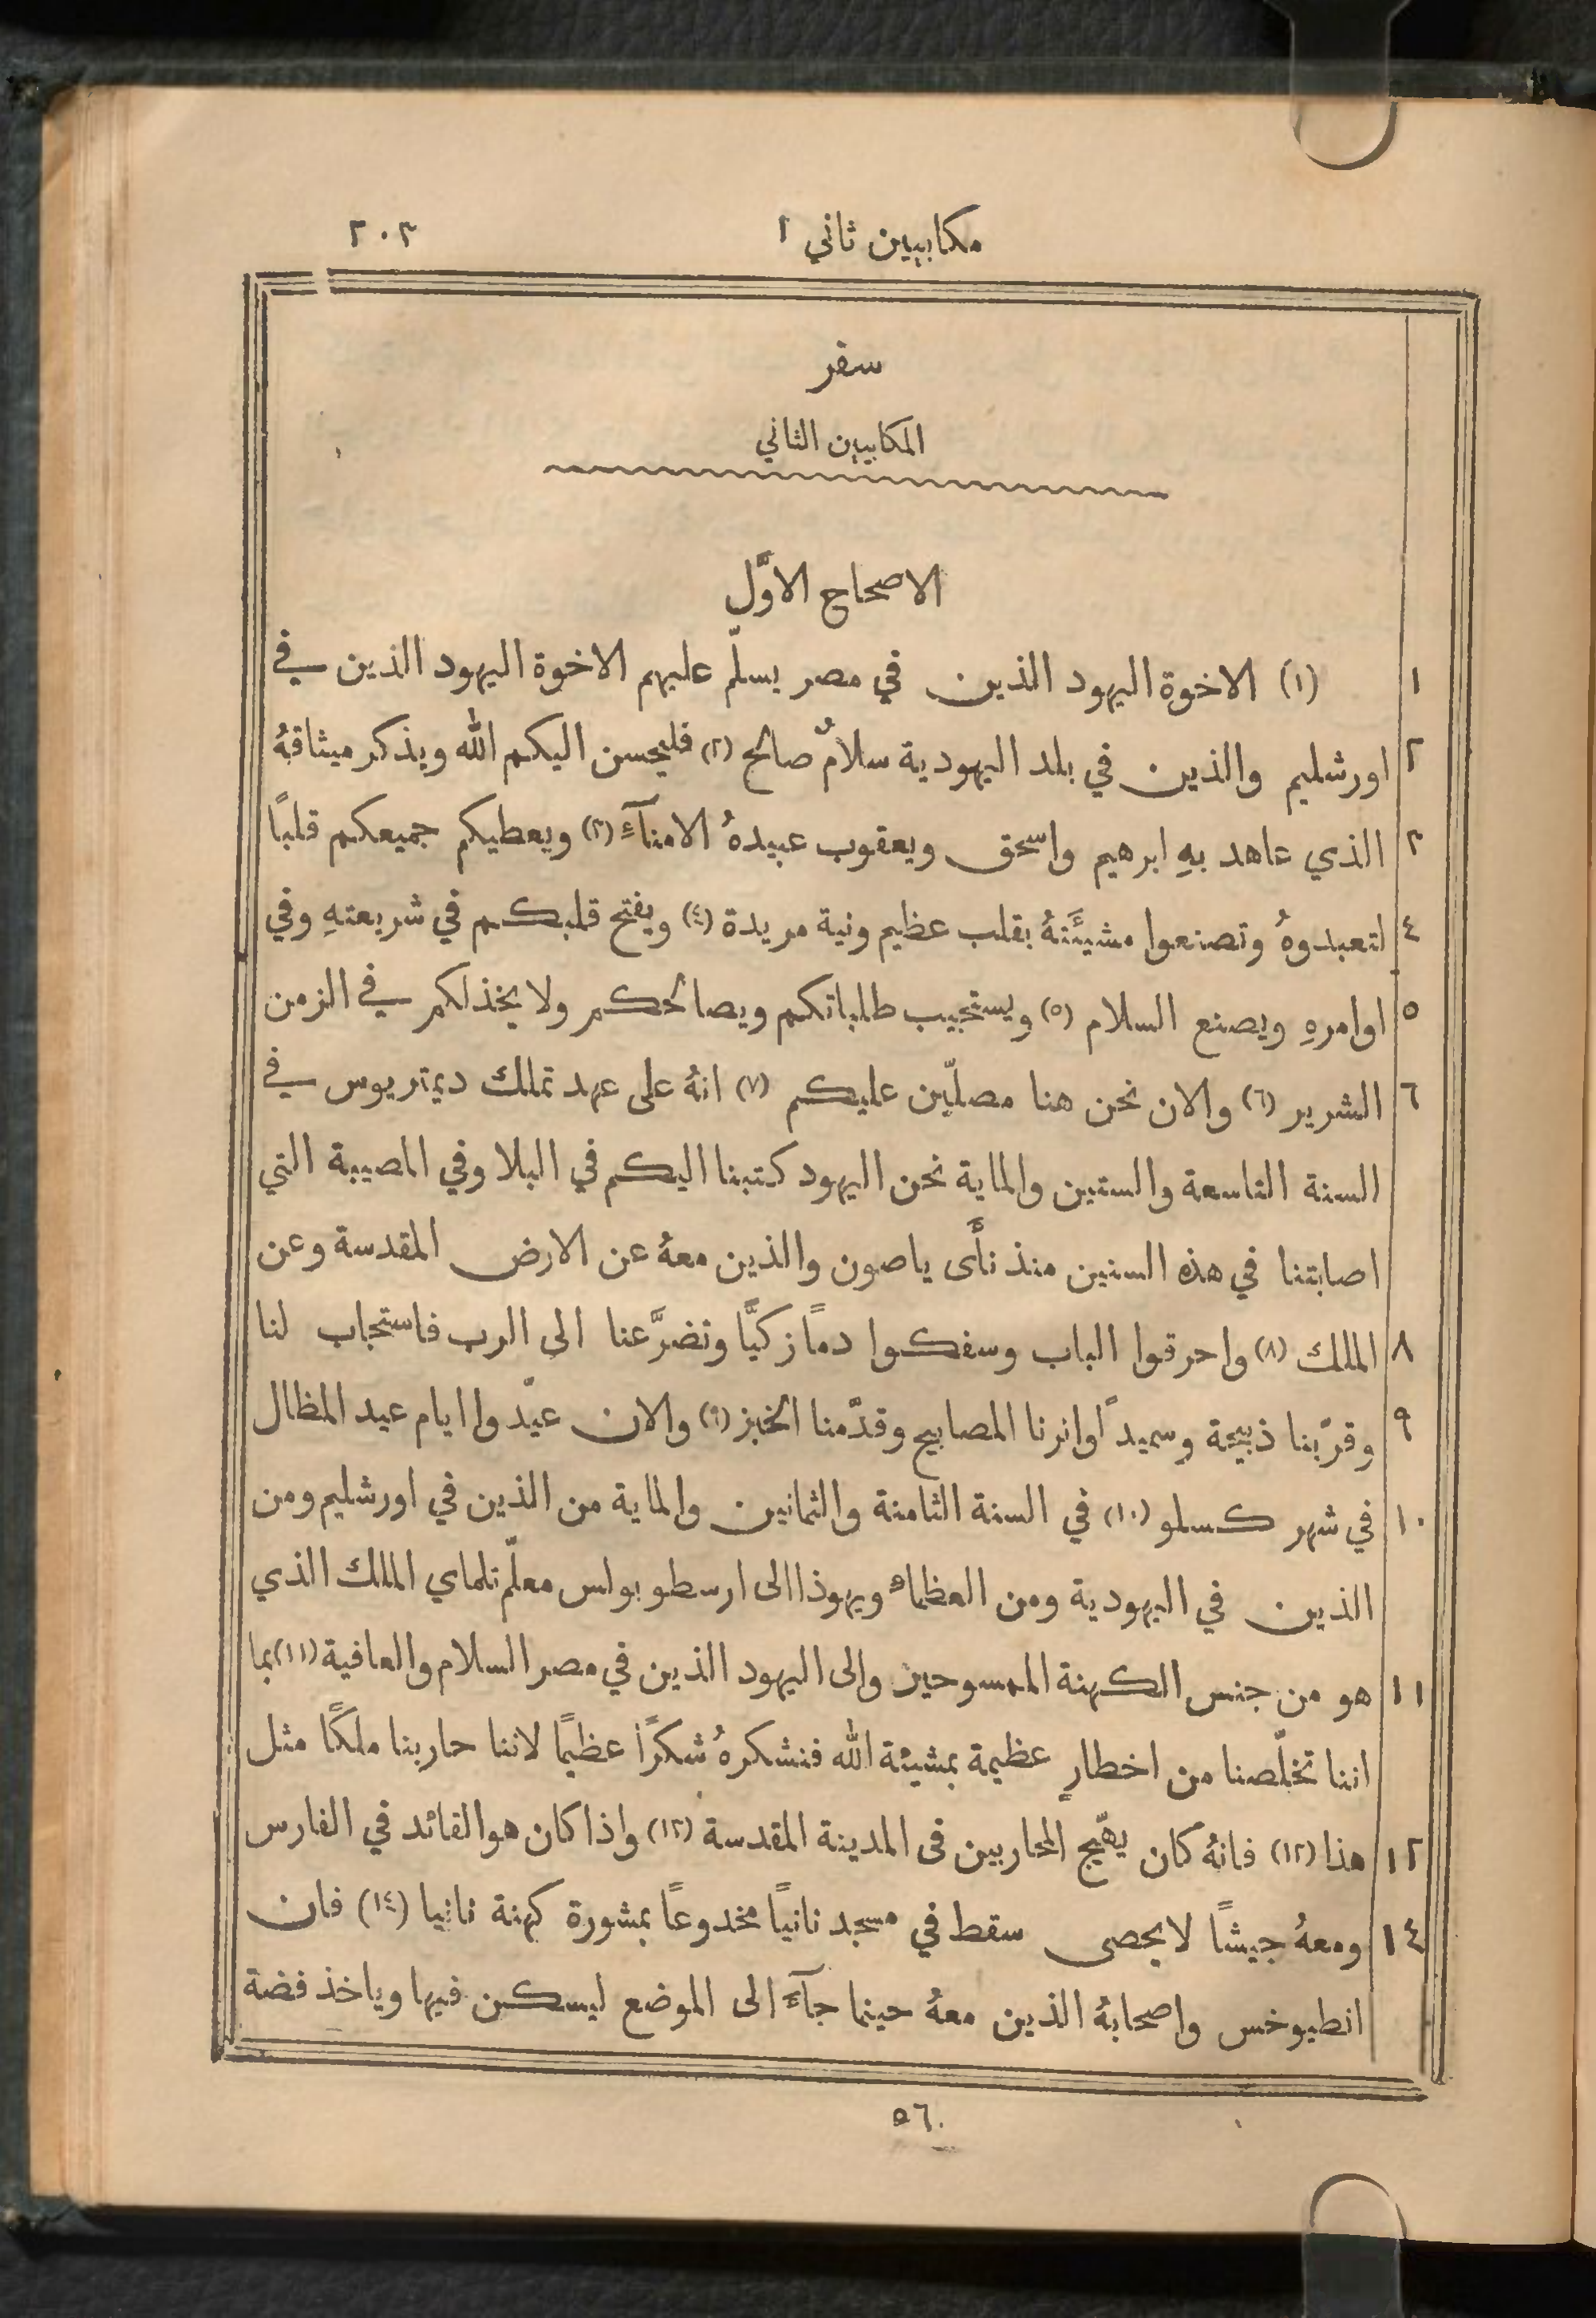 مكابيين ثاني ١ ٣٠٣
سفر
المكابيين الثاني
الاصحاح الاوَّل
١ (١) الاخوة اليهود الذين في مصر يسلّم عليهم الاخوة اليهود الذين في
٢ اورشليم والذين في بلد اليهودية سلامٌ صالح (٢) فليحسن اليكم الله ويذكر ميثاقهُ
٣ الذي عاهد بهِ ابرهيم واسحق ويعقوب عبيدهُ الامنآءِ (٣) ويعطيكم جميعكم قلبًا
٤ لتعبدوهُ وتصنعوا مشيئَتهُ بقلب عظيم ونية مريدة (٤) ويفتح قلبكم في شريعتهِ وفي
٥ اوامرهِ ويصنع السلام (٥) ويستجيب طلباتكم ويصالحكم ولا يخذلكم في الزمن
٦ الشرير (٦) والان نحن هنا مصلّين عليكم (٧) انهُ على عهد تملك ديمتريوس في
السنة التاسعة والستين والماية نحن اليهود كتبنا اليكم في البلا وفي المصيبة التي
اصابتنا في هذه السنين منذ نأَى ياصون والذين معهُ عن الارض المقدسة وعن
٨ الملك (٨) واحرقوا الباب وسفكوا دماً زكيَّا وتضرَّعنا الى الرب فاستجاب لنا
٩ وقرّبنا ذبيحة وسميدًا وانرنا المصابيح وقدَّمنا الخبز (٩) والان عيّدوا ايام عيد المظال
١٠ في شهر كسلو (١٠) في السنة الثامنة والثمانين والماية من الذين في اورشليم ومن
الذين في اليهودية ومن العظماء ويهوذا الى ارسطوبولس معلّم تلماي الملك الذي
١١ هو من جنس الكهنة الممسوحين والى اليهود الذين في مصر السلام والعافية (١١) بما
اننا تخلّصنا من اخطارٍ عظيمة بمشيئة الله فنشكرهُ شكرًا عظيمًا لاننا حاربنا ملكًا مثل
١٢ هذا (١٢) فانهُ كان يهّيج المحاربين فى المدينة المقدسة (١٣) واذا كان هو القائد في الفارس
١٤ ومعهُ جيشًا لا يحصى سقط في مسجد نانيًا مخدوعًا بمشورة كهنة نانيا (١٤) فان
انطيوخس واصحابهُ الذين معهُ حينما جآءَ الى الموضع ليسكن فيها وياخذ فضة
٥٦